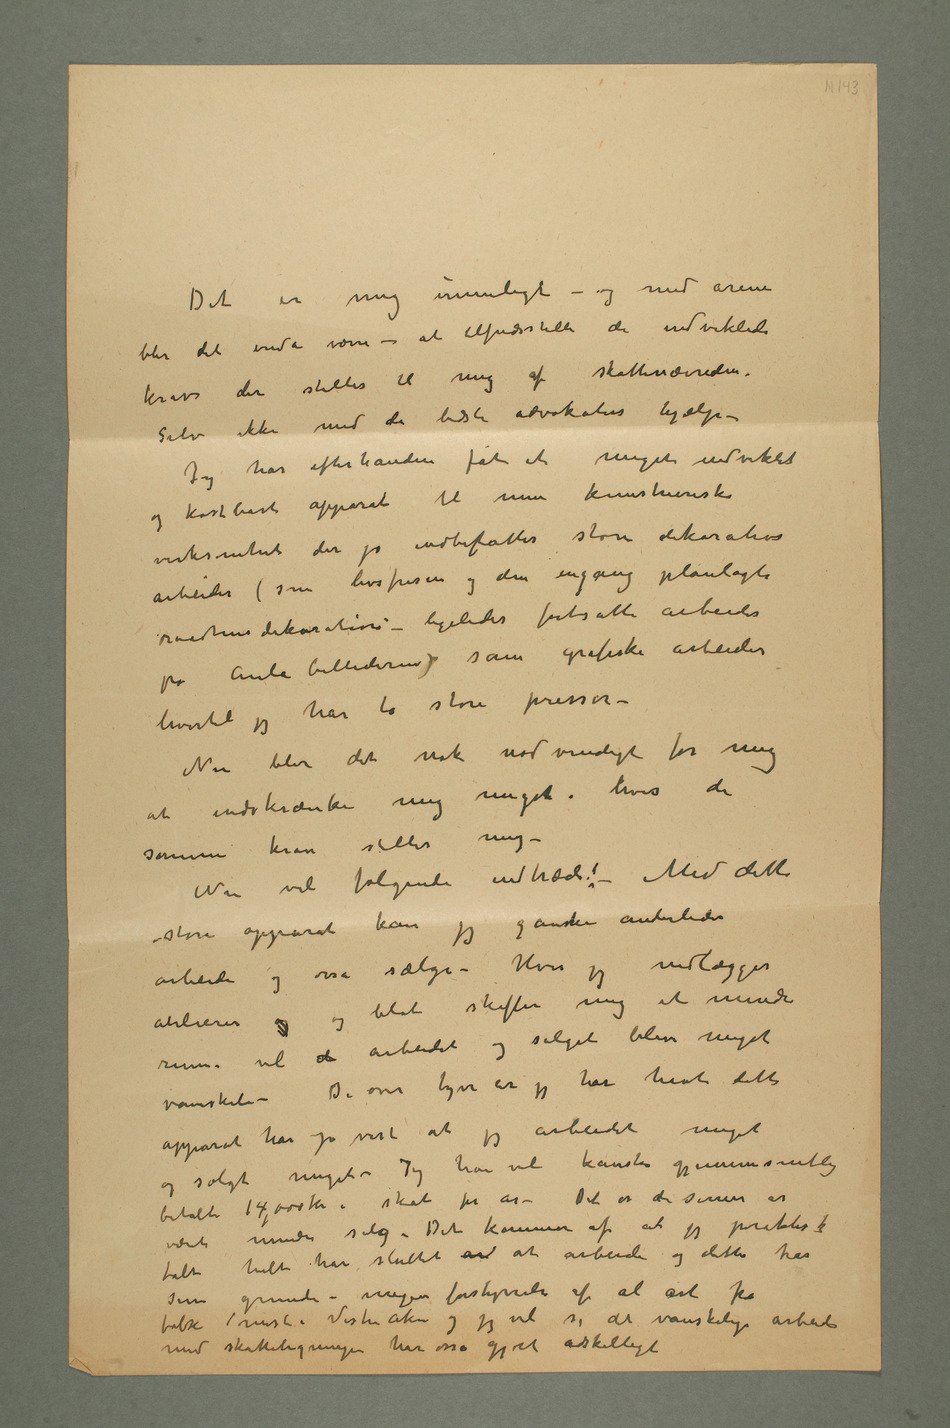 N 143
Det er mig umuligt – og med arene
blir det enda værre – at tilfredsstille de indviklede
krav der stilles til mig af skattenævnden.
Selv ikke med de bedste advokaters hjælp –
Jeg har efterhånden fåt et meget indviklet
og kostbart apparat til min kunstneriske
virksomhet der jo indbefatter store dekorative
arbeider (som livsfrisen og den engang planlagte
raadhusdekoration – ligeledes fortsatte arbeider
på Aula billederne) som grafiske arbeider
hvortil jeg har to store presser –
Nu blir det nok nødvendigt for mig
at indskrænke mig meget. hvis de
samme krav stilles mig –
Nu vil følgende indtræde! – Med dette
store apparat kan jeg ganske anderledes
arbeide og osså sælge – Hvis jeg nedlægger
atelierer og blot skaffer mig et mindre
rum. vil arbeidet og salget bli meget
vanskeligt – De over tyve år jeg har havt dette
apparat har jo vist at jeg arbeidet meget
og solgt meget – Jeg har vel kanske gjennemsnitlig
betalt 14,000 Kr i skat pr år – Det er de senere år
vært mindre salg – Det kommer af at jeg praktisk
talt helt har sluttet at arbeide og dette har
sine grunde – megen forstyrrelse af al art fra
folk mest i Vestre Aker og jeg vil si at vanskelige arbeide
med skatteligningen har osså gjort adskilligt